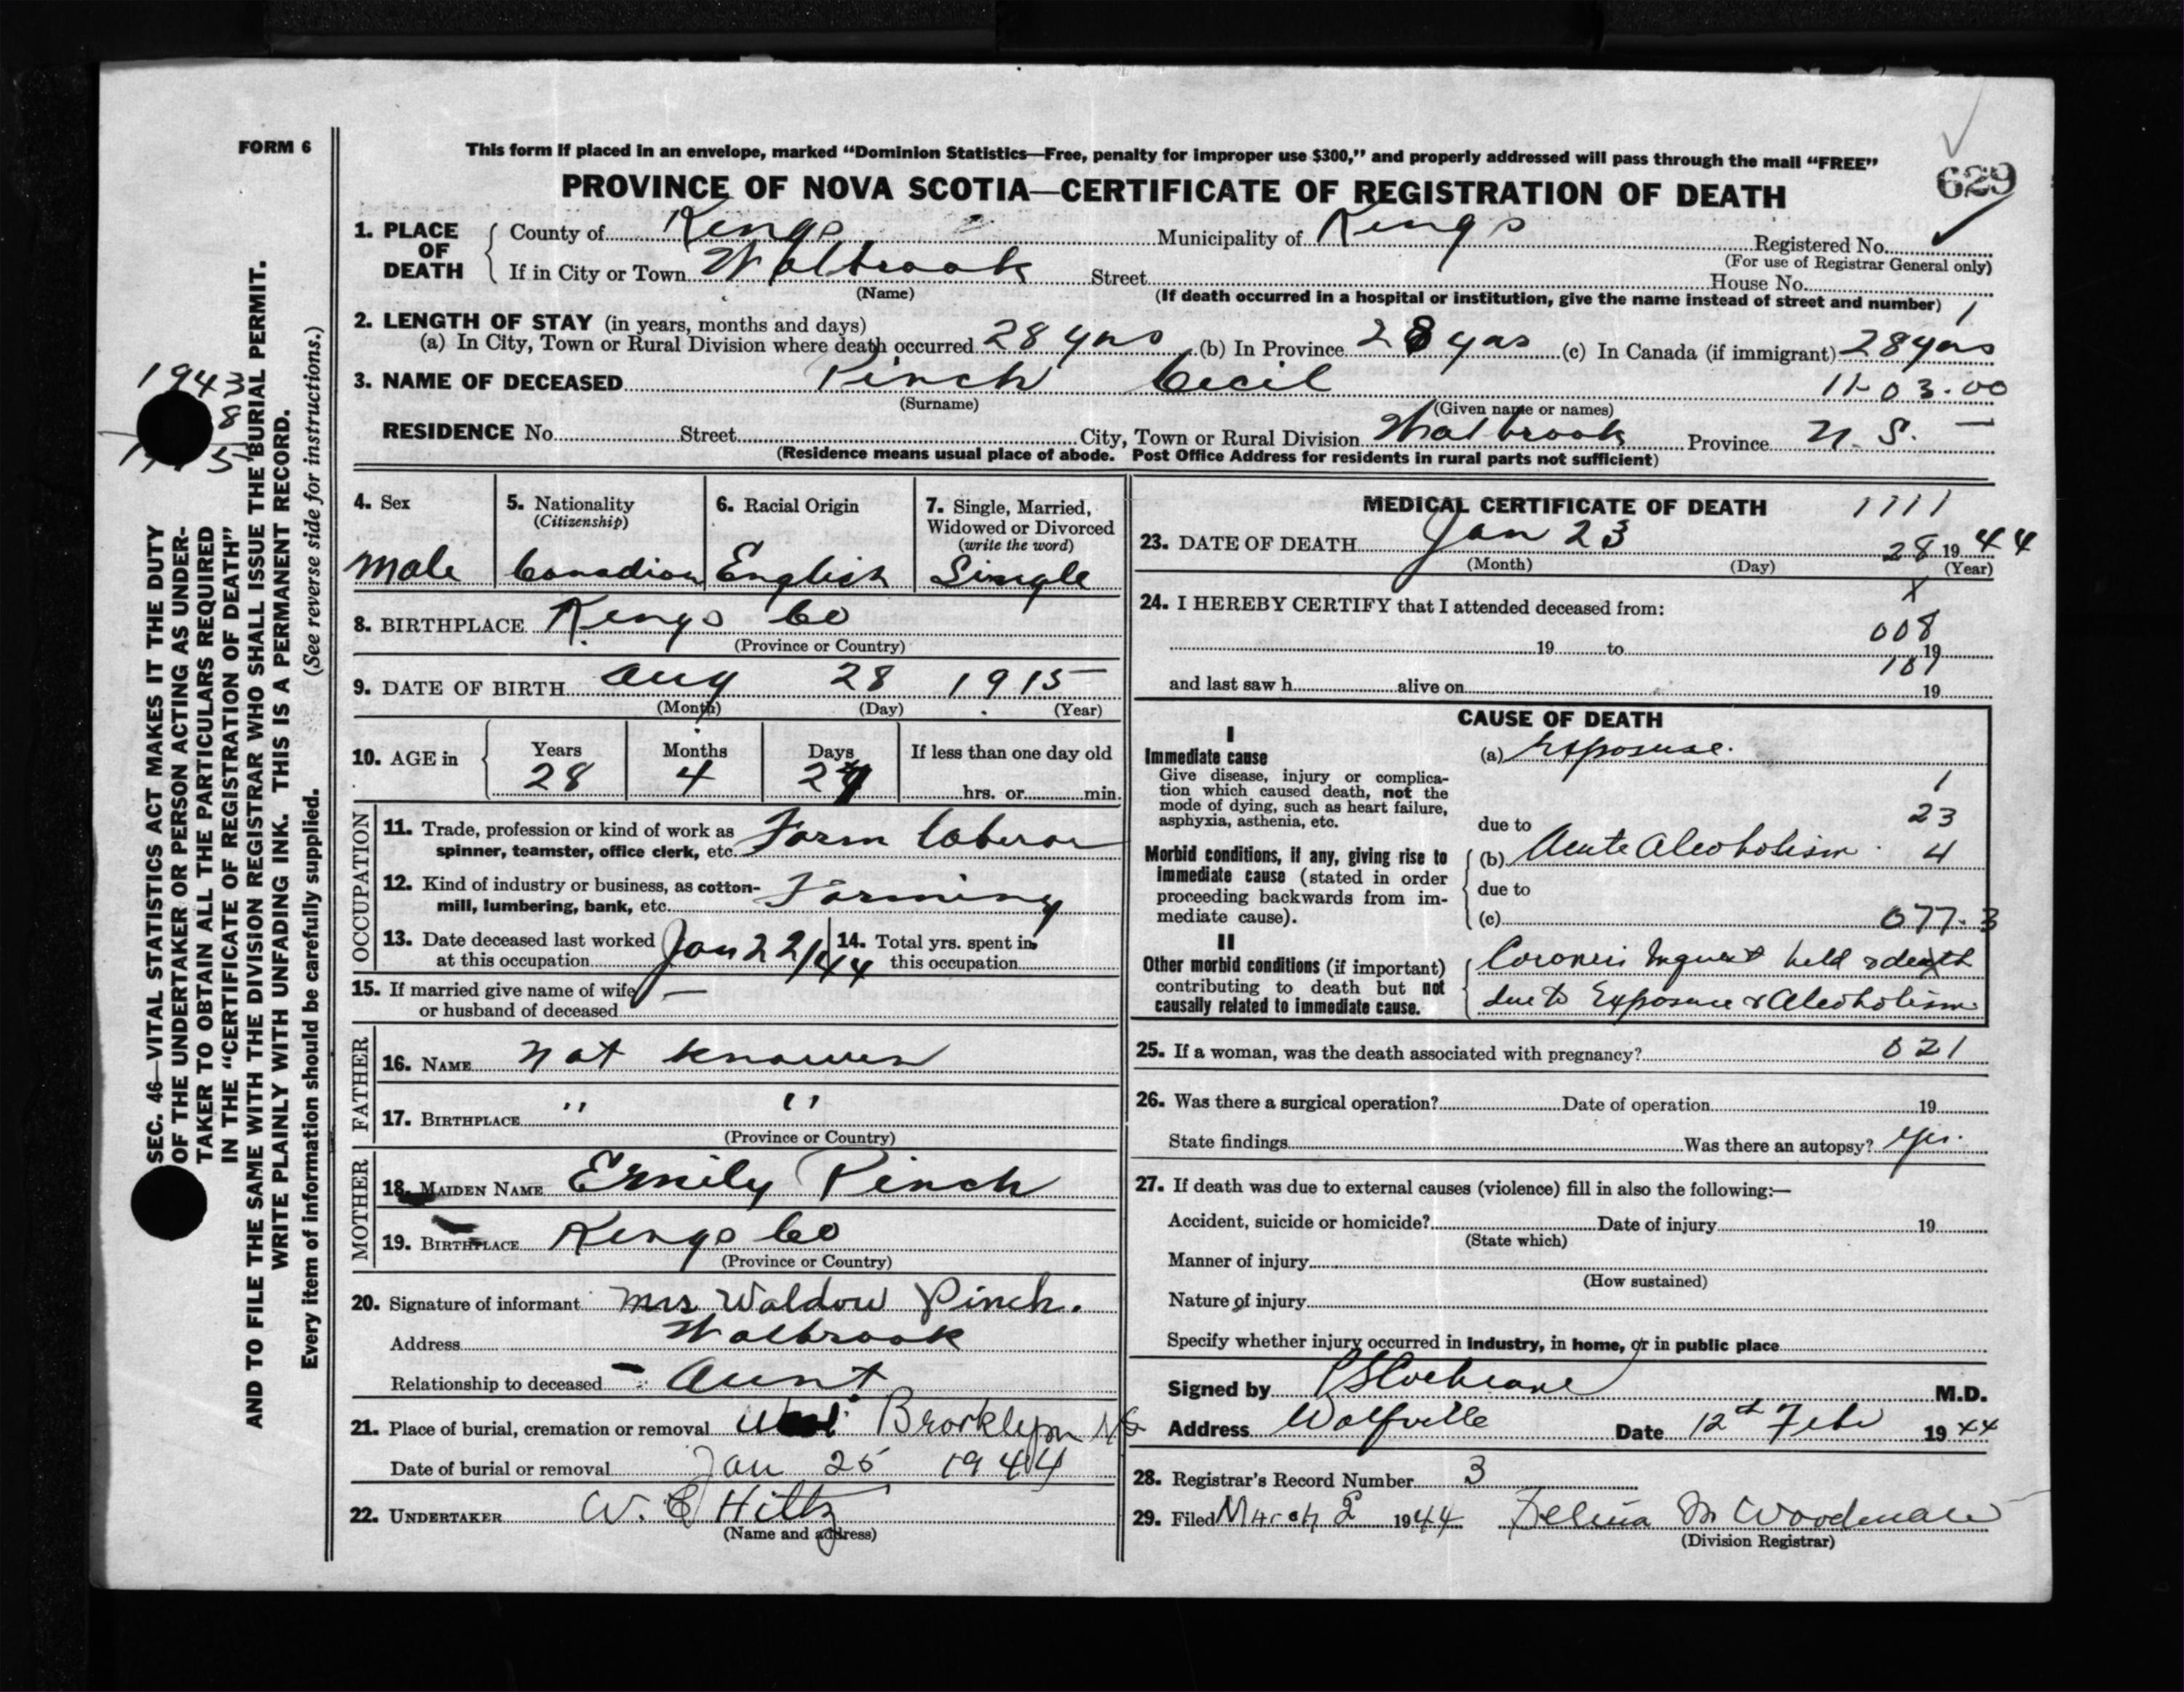 FORM 6
This form if placed in an envelope, marked “Dominion Statistics—Free, penalty for improper use $300,” and properly addressed will pass through the mail “FREE”
629
PROVINCE OF NOVA SCOTIA—CERTIFICATE OF REGISTRATION OF DEATH
1. PLACE OF DEATH
County of Kings Municipality of Kings Registered No.
(For use of Registrar General only)
If in City or Town Walbrook Street House No.
(Name) (If death occurred in a hospital or institution, give the name instead of street and number) 1
2. LENGTH OF STAY (in years, months and days)
(a) In City, Town or Rural Division where death occurred 28 yrs (b) In Province 28 yrs (c) In Canada (if immigrant) 28 yrs
3. NAME OF DECEASED Pinch Cecil 11-03.00
(Surname) (Given name or names)
RESIDENCE No. Street City, Town or Rural Division Walbrook Province N. S. —
(Residence means usual place of abode. Post Office Address for residents in rural parts not sufficient)
4. Sex
Male
5. Nationality
(Citizenship)
Canadian
6. Racial Origin
English
7. Single, Married,
Widowed or Divorced
(write the word)
Single
8. BIRTHPLACE Kings Co
(Province or Country)
9. DATE OF BIRTH Aug 28 1915
(Month) (Day) (Year)
10. AGE in
Years Months Days If less than one day old
28 4 hrs. or min.
OCCUPATION
11. Trade, profession or kind of work as
spinner, teamster, office clerk, etc. Farm laborer
12. Kind of industry or business, as cotton-
mill, lumbering, bank, etc. Farming
13. Date deceased last worked
at this occupation Jan 22/44
14. Total yrs. spent in
this occupation
15. If married give name of wife
or husband of deceased —
FATHER
16. NAME Not known
17. BIRTHPLACE " "
(Province or Country)
MOTHER
18. MAIDEN NAME Emily Pinch
19. BIRTHPLACE Kings Co
(Province or Country)
20. Signature of informant Mrs Waldow Pinch.
Address Walbrook
Relationship to deceased - Aunt
21. Place of burial, cremation or removal Brooklyn NS
Date of burial or removal Jan 25 1944
22. UNDERTAKER W. E Hiltz
(Name and address)
MEDICAL CERTIFICATE OF DEATH 1111
23. DATE OF DEATH Jan 23 28 19 44
(Month) (Day) (Year)
X
24. I HEREBY CERTIFY that I attended deceased from:
008
19 to 19
101
and last saw h alive on 19
CAUSE OF DEATH
I
Immediate cause
Give disease, injury or complica-
tion which caused death, not the
mode of dying, such as heart failure,
asphyxia, asthenia, etc.
(a) Exposure.
1
23
due to
Morbid conditions, if any, giving rise to
immediate cause (stated in order
proceeding backwards from im-
mediate cause).
(b) Acute Alcoholism 4
due to
(c) 077.3
II
Other morbid conditions (if important)
contributing to death but not
causally related to immediate cause.
Coroners Inquest held & death
due to Exposure & Alcoholism
25. If a woman, was the death associated with pregnancy? 021
26. Was there a surgical operation? Date of operation 19
State findings Was there an autopsy? Yes.
27. If death was due to external causes (violence) fill in also the following:—
Accident, suicide or homicide? Date of injury 19
(State which)
Manner of injury
(How sustained)
Nature of injury
Specify whether injury occurred in industry, in home, or in public place
Signed by PS Cochrane M.D.
Address Wolfville Date 12th Feb 19 44
28. Registrar's Record Number 3
29. Filed March 2 1944 M Woodman
(Division Registrar)
SEC. 46—VITAL STATISTICS ACT MAKES IT THE DUTY
OF THE UNDERTAKER OR PERSON ACTING AS UNDER-
TAKER TO OBTAIN ALL THE PARTICULARS REQUIRED
IN THE “CERTIFICATE OF REGISTRATION OF DEATH”
AND TO FILE THE SAME WITH THE DIVISION REGISTRAR WHO SHALL ISSUE THE BURIAL PERMIT.
WRITE PLAINLY WITH UNFADING INK. THIS IS A PERMANENT RECORD.
Every item of information should be carefully supplied. (See reverse side for instructions.)